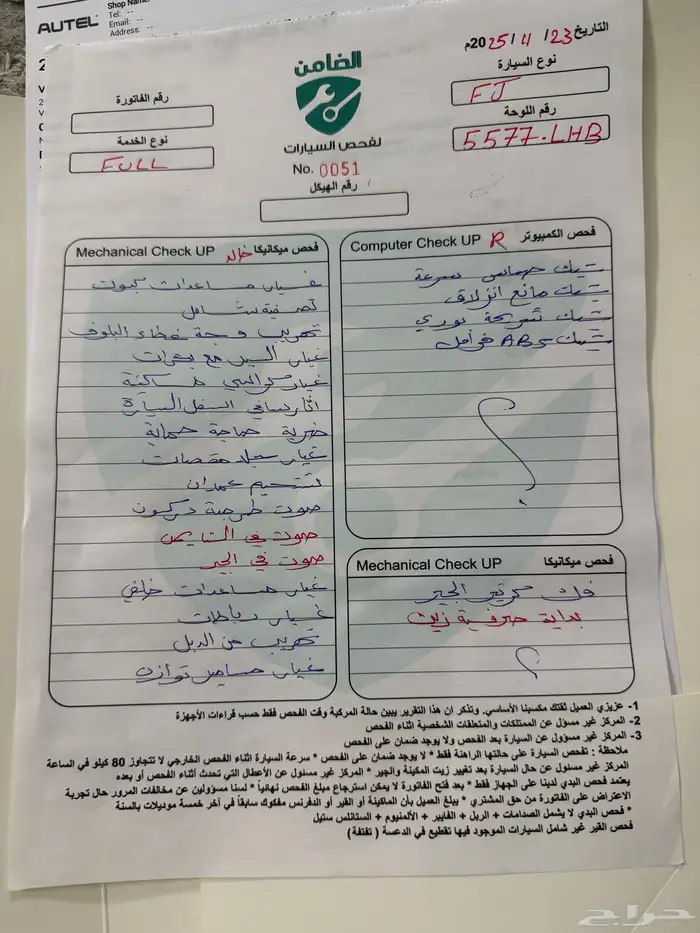 Shop Name:
AUTEL
Tel: --
Email: --
Address: --
التاريخ 23 / 4 / 2025م
نوع السيارة
FJ
رقم اللوحة
5577.LHB
الضامن
لفحص السيارات
No. 0051
رقم الهيكل
رقم الفاتورة
نوع الخدمة
FULL
فحص الكمبيوتر Computer Check UP R
شيك حساس سرعة
شيك مانع انزلاق
شيك شريحة بوري
شيك ABS فرامل
فحص ميكانيكا Mechanical Check UP
غيار مساعدات كبوت
تصفية شامل
تهريب وجة غطاء البلوف
غيار السير مع بكرات
غيار كراسي مكينة
اثار رسافي اسفل السيارة
ضربة حماية
غيار جلد مقصات
تشحيم عمدان
صوت طرمبة دركسون
صوت في التايمن
صوت في الجير
غيار مساعدات خلفي
غيار رباطات
تهريب من الدبل
غيار مسامير توازن
فحص ميكانيكا Mechanical Check UP
فك كرتير الجير
بداية صرفية زيت
1- عزيزي العميل ثقتك مكسبنا الأساسي. وتذكر ان هذا التقرير يبين حالة المركبة وقت الفحص فقط حسب قراءات الأجهزة
2- المركز غير مسؤل عن الممتلكات والمتعلقات الشخصية اثناء الفحص
3- المركز غير مسؤل عن السيارة بعد الفحص ولا يوجد ضمان على الفحص
ملاحظة : تفحص السيارة على حالتها الراهنة فقط * لا يوجد ضمان على الفحص * سرعة السيارة اثناء الفحص الخارجي لا تتجاوز 80 كيلو في الساعة
المركز غير مسئول عن حال السيارة بعد تغيير زيت المكينة والجير * المركز غير مسئول عن الأعطال التي تحدث أثناء الفحص أو بعده
يعتمد فحص البدي لدينا على الجهاز فقط * بعد فتح الفاتورة لا يمكن استرجاع مبلغ الفحص نهائياً * لسنا مسؤولين عن مخالفات المرور حال تجربة
الاعتراض على الفاتورة من حق المشتري * يبلغ العميل بأن الماكينة أو القير أو الدفرنس مفكوك سابقاً في آخر خمسة موديلات بالسنة
* فحص البدي لا يشمل الصدامات + الربل + الفايبر + الألمنيوم + الستانلس ستيل
فحص القير غير شامل السيارات الموجود فيها تقطيع في الدعسة ( تفتفة )
حراج